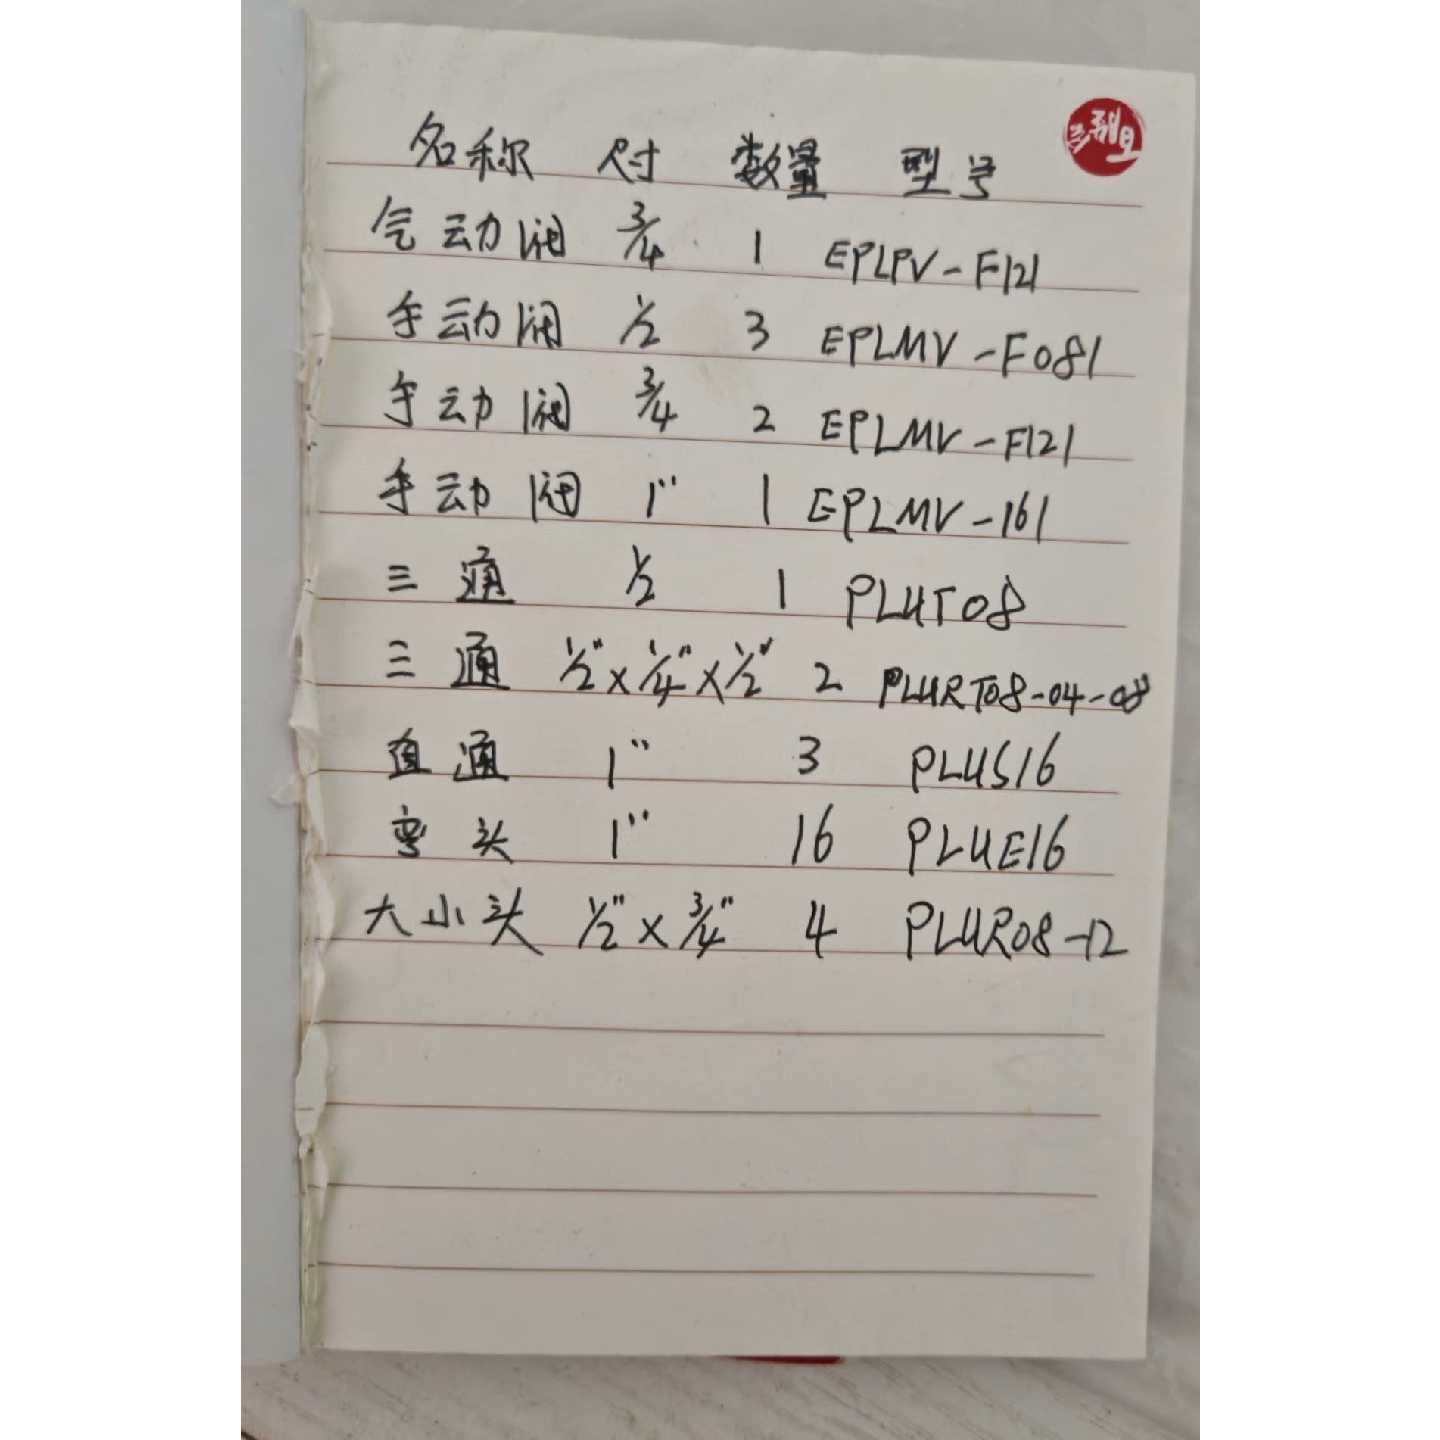 名称 尺寸 数量 型号
气动阀 3/4 1 EPLPV-F121
手动阀 1/2 3 EPLMV-F081
手动阀 3/4 2 EPLMV-F121
手动阀 1" 1 EPLMV-161
三通 1/2 1 PLUT08
三通 1/2"×1/4"×1/2" 2 PLURT08-04-08
直通 1" 3 PLUS16
弯头 1" 16 PLUE16
大小头 1/2"×3/4" 4 PLUR08-12